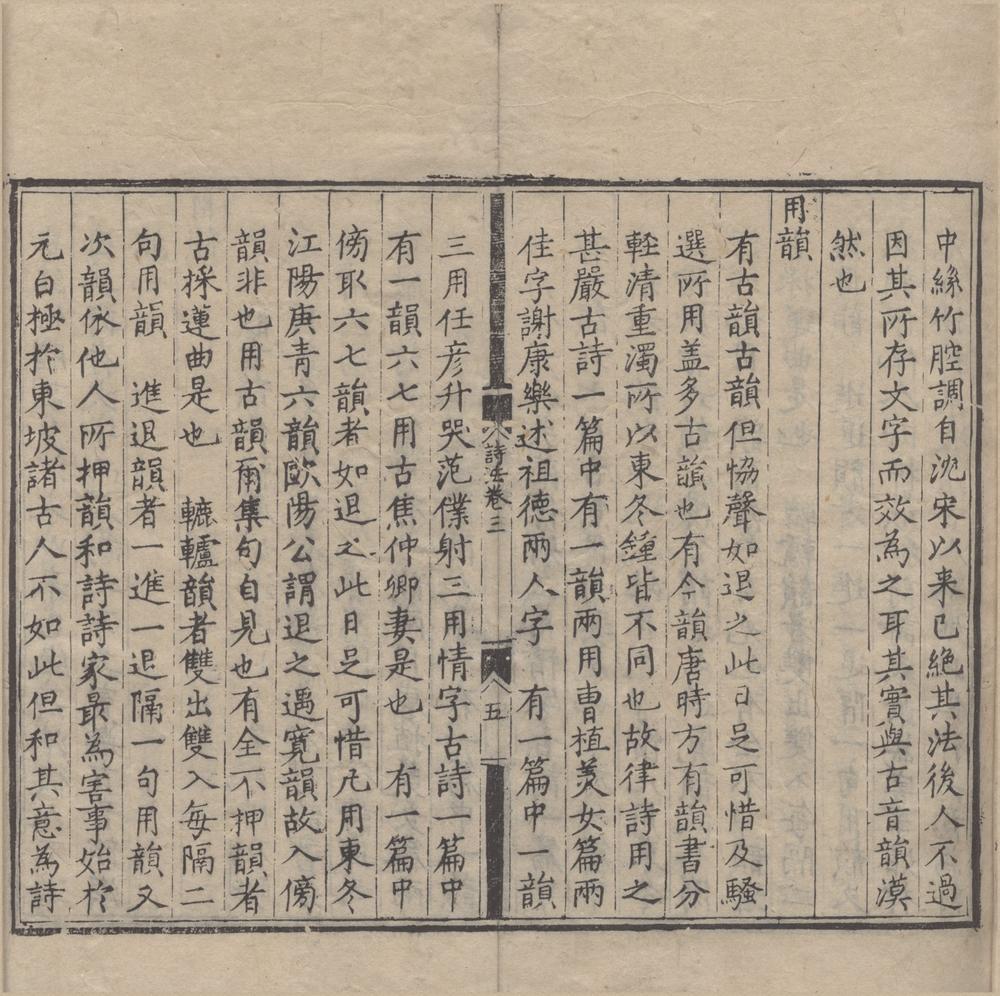 中絲竹腔調自沈宋以来已絶其法後人不過
因其所存文字而效為之耳其實與古音韻漠
然也
用韻
有古韻古韻但恊聲如退之此日足可惜及騷
選所用盖多古韻也有今韻唐時方有韻書分
軽清重濁所以東冬鍾皆不同也故律詩用之
甚嚴古詩一篇中有一韻兩用曹植羙女篇兩
佳字謝康樂述祖德兩人字 有一篇中一韻
詩法卷三
五
三用任彦升哭范僕射三用情字古詩一篇中
有一韻六七用古焦仲卿妻是也 有一篇中
傍取六七韻者如退之此日足可惜凡用東冬
江陽庚青六韻歐陽公謂退之遇寛韻故入傍
韻非也用古韻爾集句自見也有全不押韻者
古採蓮曲是也 轆轤韻者雙出雙入每隔二
句用韻 進退韻者一進一退隔一句用韻又
次韻依他人所押韻和詩詩家最為害事始於
元白極於東坡諸古人不如此但和其意為詩